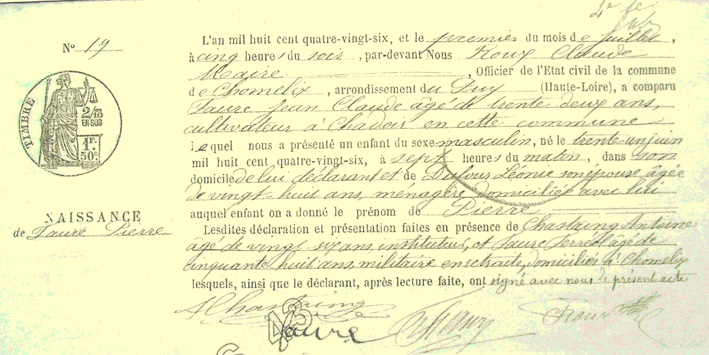 N° 19
L'an mil huit cent quatre-vingt-six, et le premier du mois de Juillet,
à cinq heures du soir, par-devant Nous Roux Claude
Maire, Officier de l'Etat civil de la commune
de Chomelix, arrondissement du Puy (Haute-Loire), a comparu
Faure Jean Claude âgé de trente deux ans,
cultivateur à Chadoir en cette commune
lequel nous a présenté un enfant du sexe masculin, né le trente un juin
mil huit cent quatre-vingt-six, à sept heures du matin, dans son
domicile de lui déclarant et de Dufour Léonie son épouse âgée
de vingt-huit ans, ménagère domiciliée avec lui
auquel enfant on a donné le prénom de Pierre
Lesdites déclaration et présentation faites en présence de Chastaing Antoine
âgé de vingt six ans, instituteur, et Faure Pierre âgé de
cinquante huit ans, militaire en retraite, domiciliés à Chomelix
lesquels, ainsi que le déclarant, après lecture faite, ont signé avec nous le présent acte
TIMBRE
2/10 EN SUS
1F. 50c.
NAISSANCE
de Faure Pierre
AChastaing
43
Faure
Roux